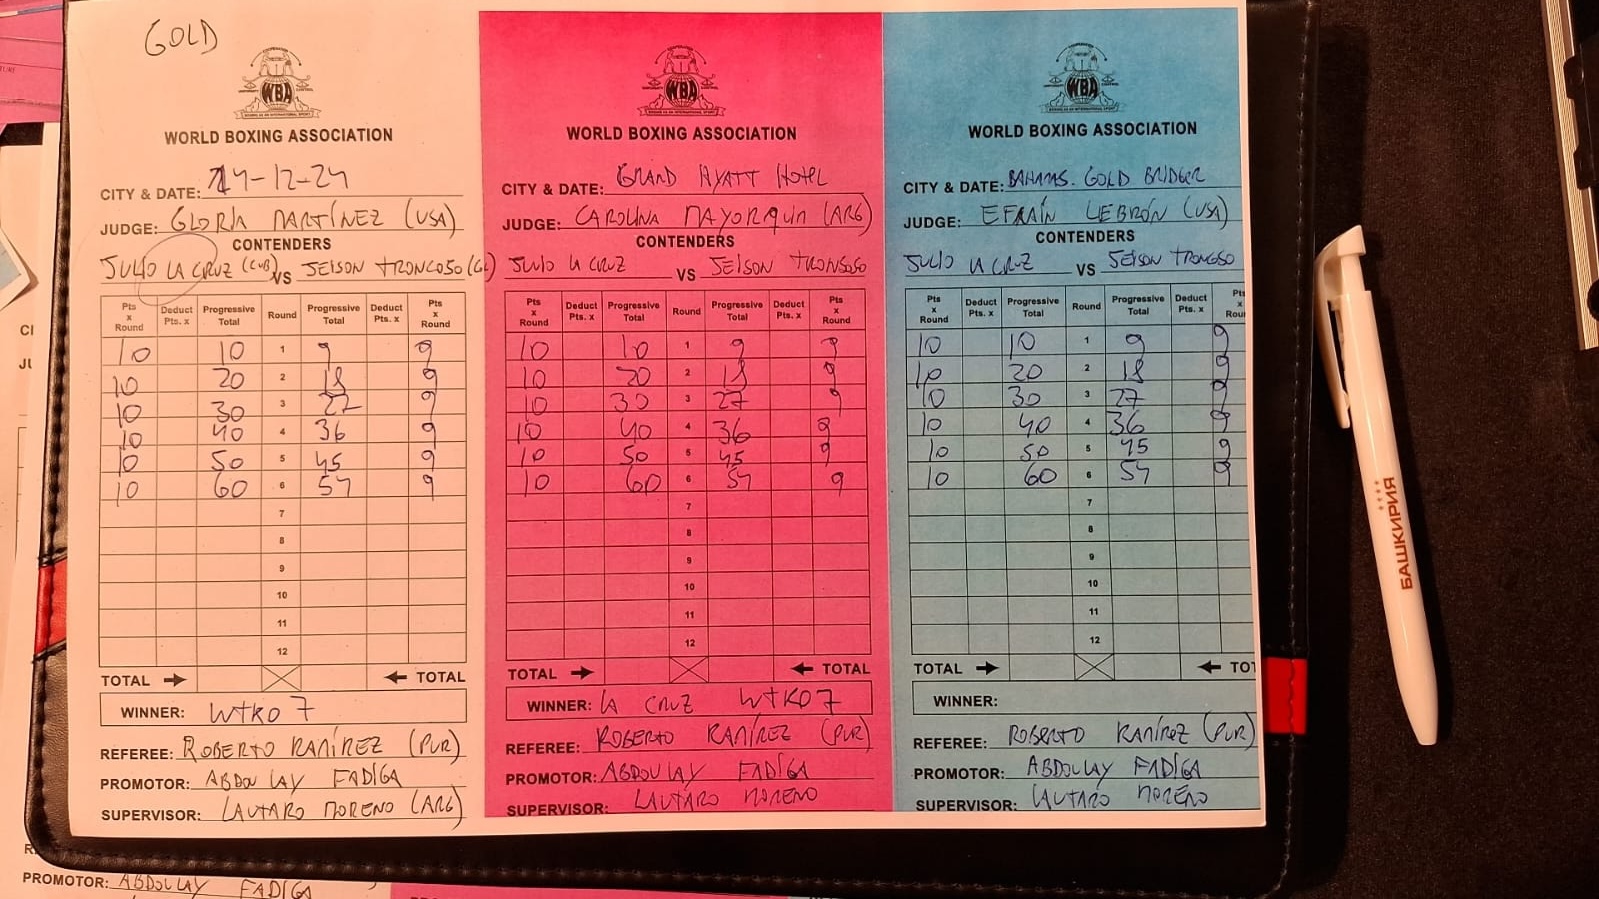 GOLD
WBA
WORLD BOXING ASSOCIATION
CITY & DATE: 14-12-24
JUDGE: GLORIA MARTÍNEZ (USA)
CONTENDERS
JULIO LA CRUZ (CUB) VS JEISON TRONCOSO
Pts x Round Deduct Pts. x Progressive Total Round Progressive Total Deduct Pts. x Pts x Round
10 10 1 9 9
10 20 2 18 9
10 30 3 27 9
10 40 4 36 9
10 50 5 45 9
10 60 6 54 9
7
8
9
10
11
12
TOTAL → ← TOTAL
WINNER: WTKO 7
REFEREE: ROBERTO RAMÍREZ (PUR)
PROMOTOR: ABDOULAY FADIGA
SUPERVISOR: LAUTARO MORENO (ARG)
WBA
WORLD BOXING ASSOCIATION
CITY & DATE: GRAND HYATT HOTEL
JUDGE: CAROLINA MAYORQUIN (ARG)
CONTENDERS
JULIO LA CRUZ VS JEISON TRONSOSO
Pts x Round Deduct Pts. x Progressive Total Round Progressive Total Deduct Pts. x Pts x Round
10 10 1 9 9
10 20 2 18 9
10 30 3 27 9
10 40 4 36 9
10 50 5 45 9
10 60 6 54 9
7
8
9
10
11
12
TOTAL → ← TOTAL
WINNER: LA CRUZ WTKO 7
REFEREE: ROBERTO RAMÍREZ (PUR)
PROMOTOR: ABDOULAY FADIGA
SUPERVISOR: LAUTARO MORENO
WBA
WORLD BOXING ASSOCIATION
CITY & DATE: BAHAMAS. GOLD BRIDGER
JUDGE: EFRAÍN LEBRÓN (USA)
CONTENDERS
JULIO LA CRUZ VS JEISON TRONCOSO
Pts x Round Deduct Pts. x Progressive Total Round Progressive Total Deduct Pts. x Pts x Roun
10 10 1 9 9
10 20 2 18 9
10 30 3 27 9
10 40 4 36 9
10 50 5 45 9
10 60 6 54 9
7
8
9
10
11
12
TOTAL → ← TOT
WINNER:
REFEREE: ROBERTO RAMÍREZ (PUR)
PROMOTOR: ABDOULAY FADIGA
SUPERVISOR: LAUTARO MORENO
БАШКИРИЯ
PROMOTOR: ABDOULAY FADIGA